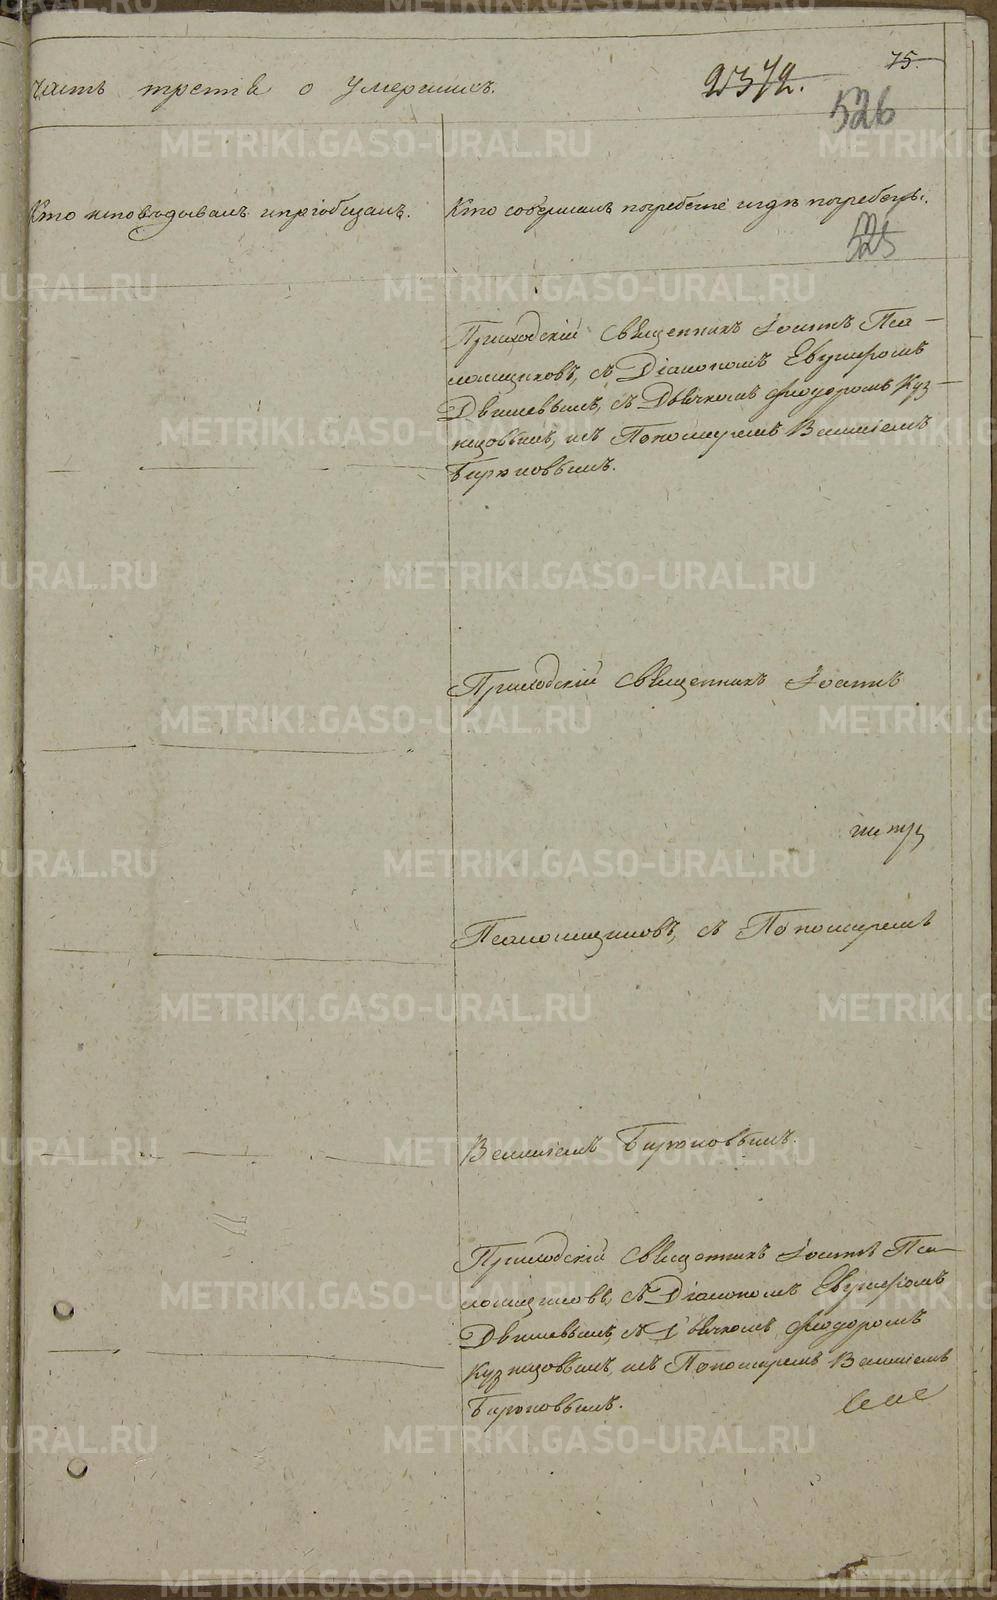 75.
часть третія о умершихъ.
2372.
526
Кто исповѣдывалъ и пріобщалъ.
Кто совершалъ погребеніе и гдѣ погребены.
525
Приходскій Священникъ Іоаннъ Пса-
ломщиковъ, съ Діакономъ Евгиѳромъ
съ Дьячкомъ Ѳеодоромъ Куз-
нцовымъ, и съ Пономаремъ Василіемъ
Бирюковымъ.
Приходскій Священникъ Іоаннъ
Псаломщиковъ, съ Пономаремъ
Василіемъ Бирюковымъ.
Приходскій Священникъ Іоаннъ Пса-
ломщиковъ, съ Діакономъ
съ Дьячкомъ Ѳеодоромъ
Кузнцовымъ, и съ Пономаремъ Василіемъ
Бирюковымъ.
METRIKI.GASO-URAL.RU